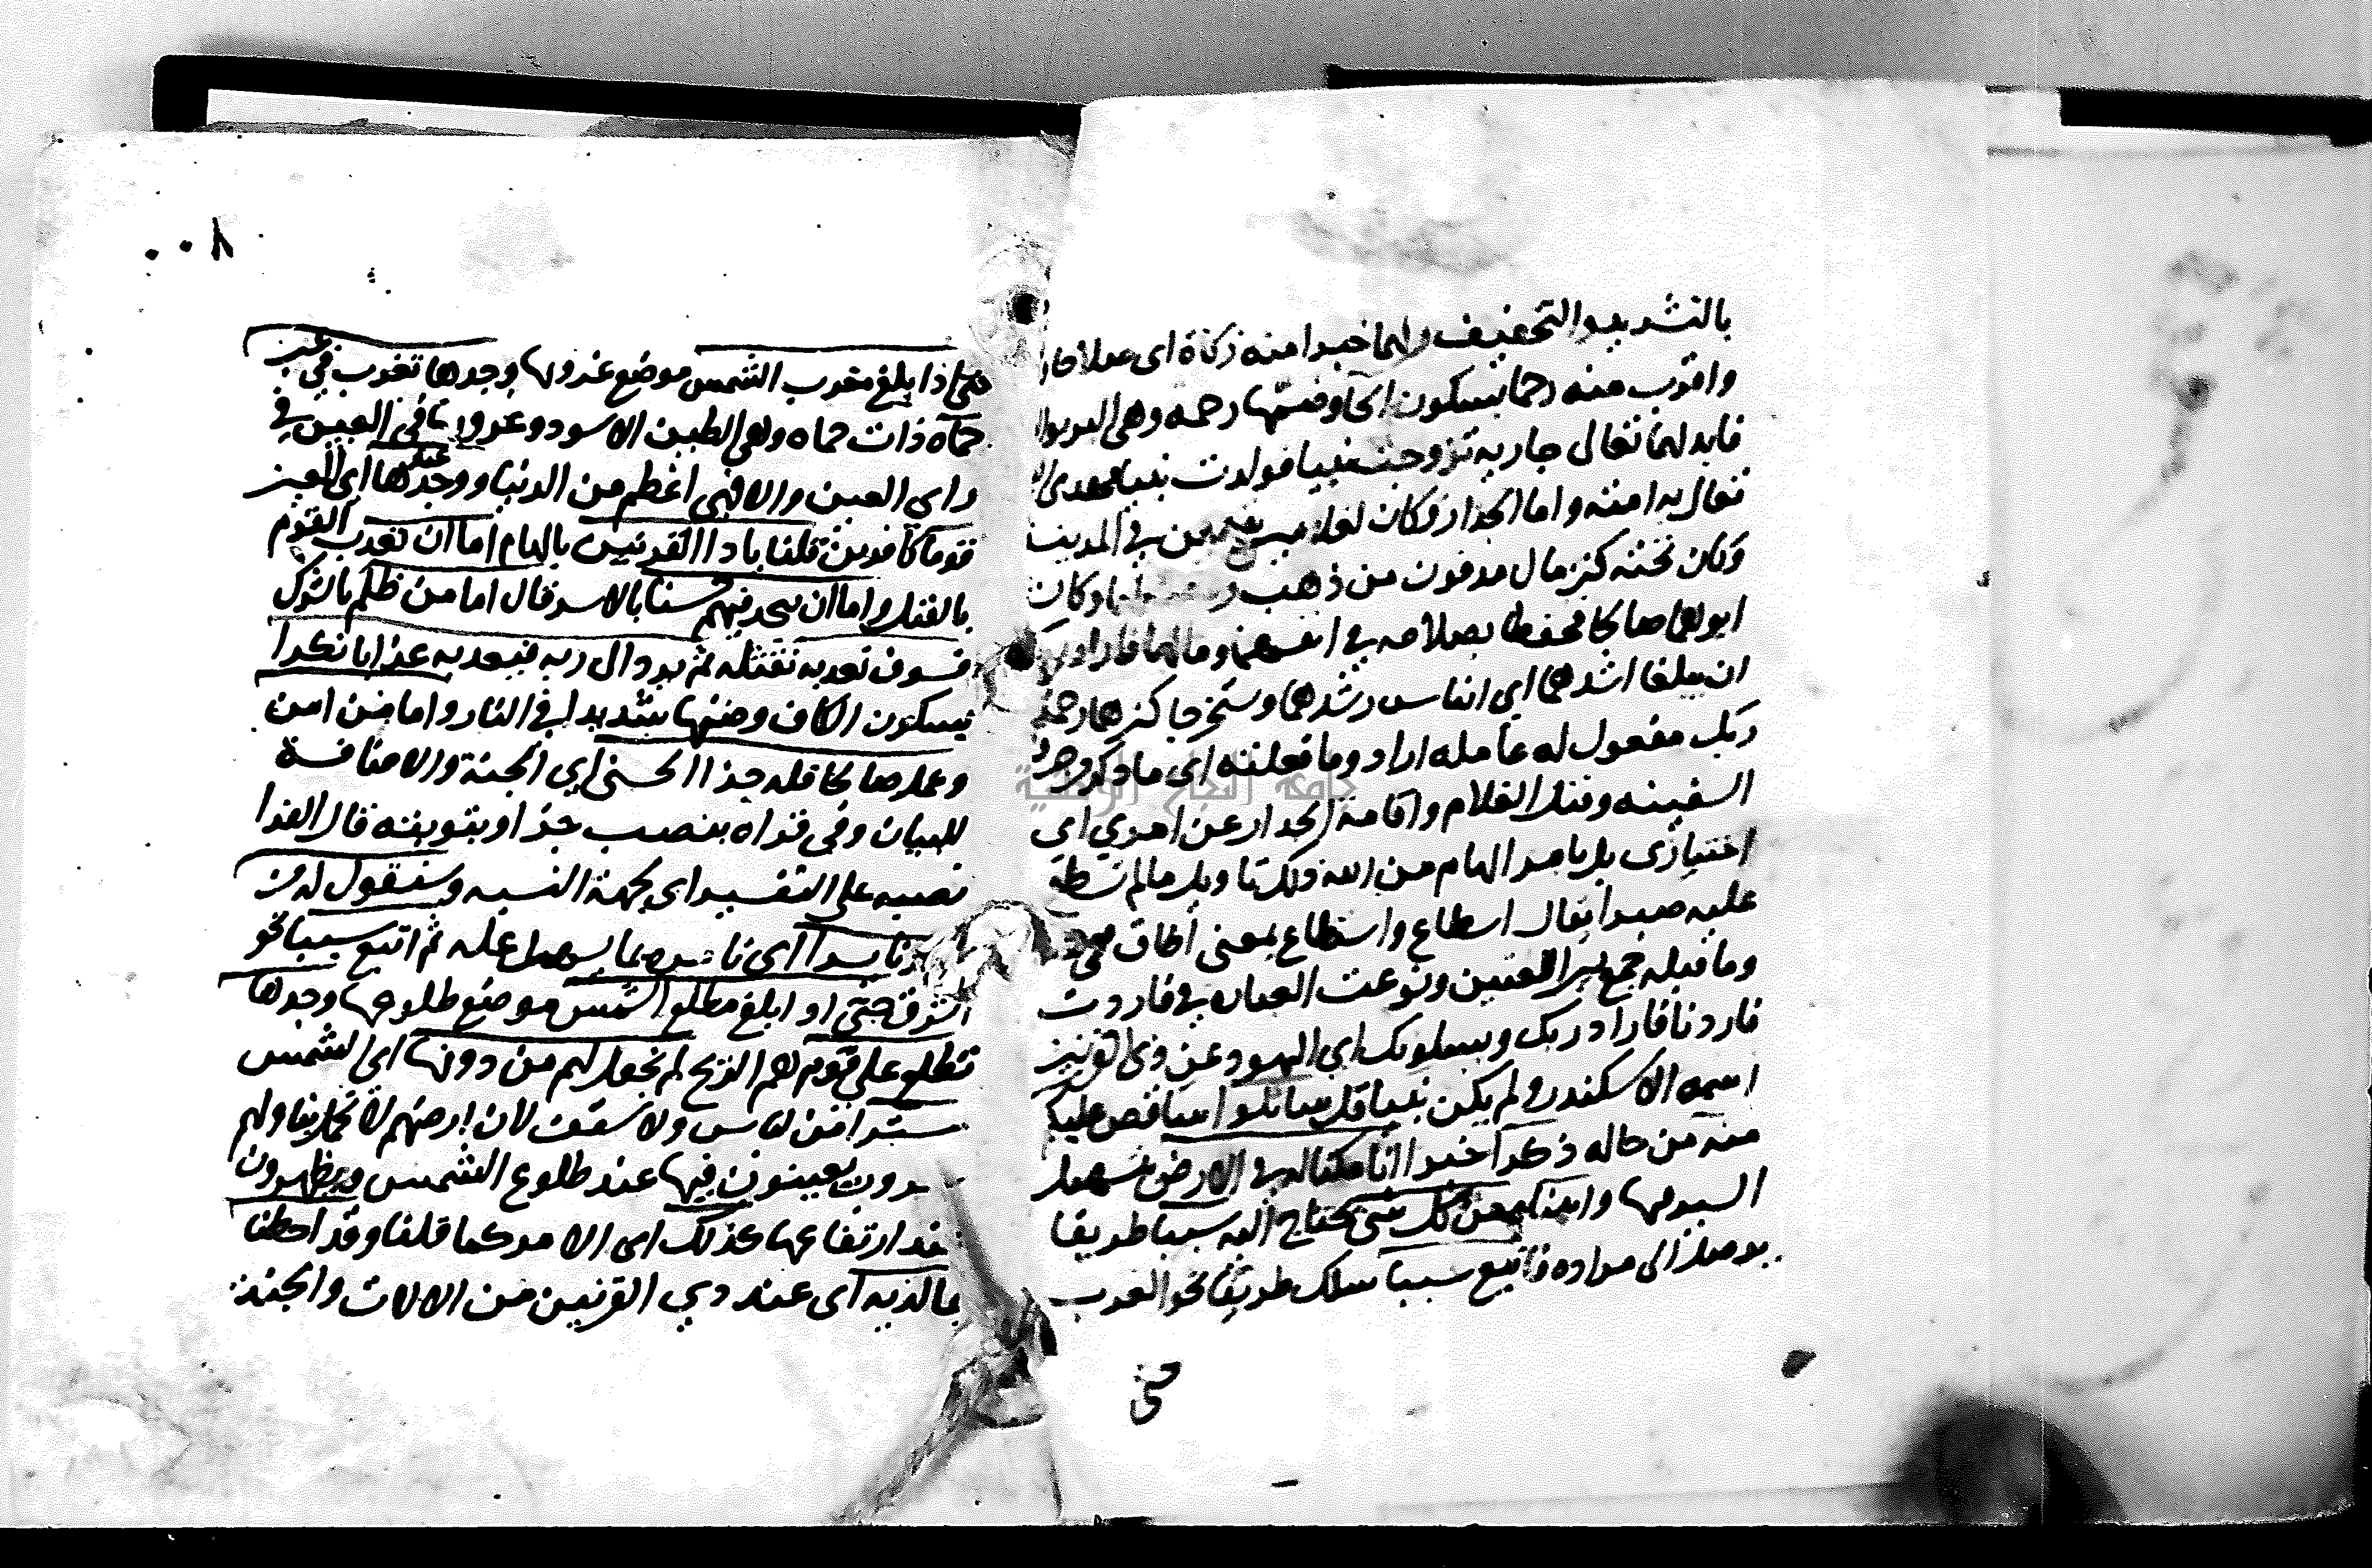 بالتشديد والتخفيف ربهما خيرا منه زكاة اى صلاحا
واقرب منه رحما بسكون الحا وضمها رحمه وهي البر بوالـ
فابدلهما تعالى جاريه تزوجت نبيا فولدت نبيا فهدى الـ
تعالى به امته واما الجدار فكان لغلامين يتيمين في المدينة
وكان تحته كنز مال مدفون من ذهب وفضه لهما وكان
ابوهما صالحا فحفظا بصلاحه في انفسهما ومالهما فاراد ربك
ان يبلغا اشدهما اي ايناس رشدهما ويستخرجا كنزهما رحمة
من ربك مفعول له عامله اراد وما فعلته اى ما ذكر من خرق
السفينه وقتل الغلام واقامة الجدار عن امري اي
اختياري بل بامر الهام من الله ذلك تاويل ما لم تسطع
عليه صبرا يقال اسطاع واستطاع بمعنى اطاق ففي
وما قبله جمع بين اللغتين ونوعت العباره في فاردت
فاردنا فاراد ربك ويسلونك اي اليهود عن ذي القرنين
اسمه الاسكندر ولم يكن نبيا قل ساتلوا ساقص عليكم
منه من حاله ذكرا خبرا انا مكنا له في الارض بتسهيل
السير فيها واتيناه من كل شي يحتاج اليه سببا طريقا
يوصله الى مراده فاتبع سببا سلك طريقا نحو الغرب
حتى
٨٠٠
حتى اذا بلغ مغرب الشمس موضع غروبها وجدها تغرب في عين
حماه ذات حماه وهي الطين الاسود وغروبها في العين في
راي العين والا فهي اعظم من الدنيا ووجد عندها اي العين
قوما كافرين قلنا ياذا القرنين بالهام اما ان تعذب القوم
بالقتل واما ان تتخذ فيهم حسنا بالاسر قال اما من ظلم بالشرك
فسوف نعذبه نقتله ثم يرد الى ربه فيعذبه عذابا نكرا
بسكون الكاف وضمها شديدا في النار واما من امن
وعمل صالحا فله جزا الحسنى اي الجنة والاضافة
للبيان وفي قراه بنصب جزا وبتوينه قال الفرا
نصبه على التفسير اي بجهة النسبه وسنقول له من
امرنا يسرا اى نامره بما يسهل عله ثم اتبع سببا نحو
الشرق حتى اذا بلغ مطلع الشمس موضع طلوعها وجدها
تطلع على قوم هم الزنج لم نجعل لهم من دونها اي الشمس
سترا من لباس ولا سقف لان ارضهم لا تحمل بنا ولهم
سروب يغيبون فيها عند طلوع الشمس ويظهرون
عند ارتفاعها كذلك اى الامر كما قلنا وقد احطنا
بما لديه اى عند ذي القرنين من الالات والجند